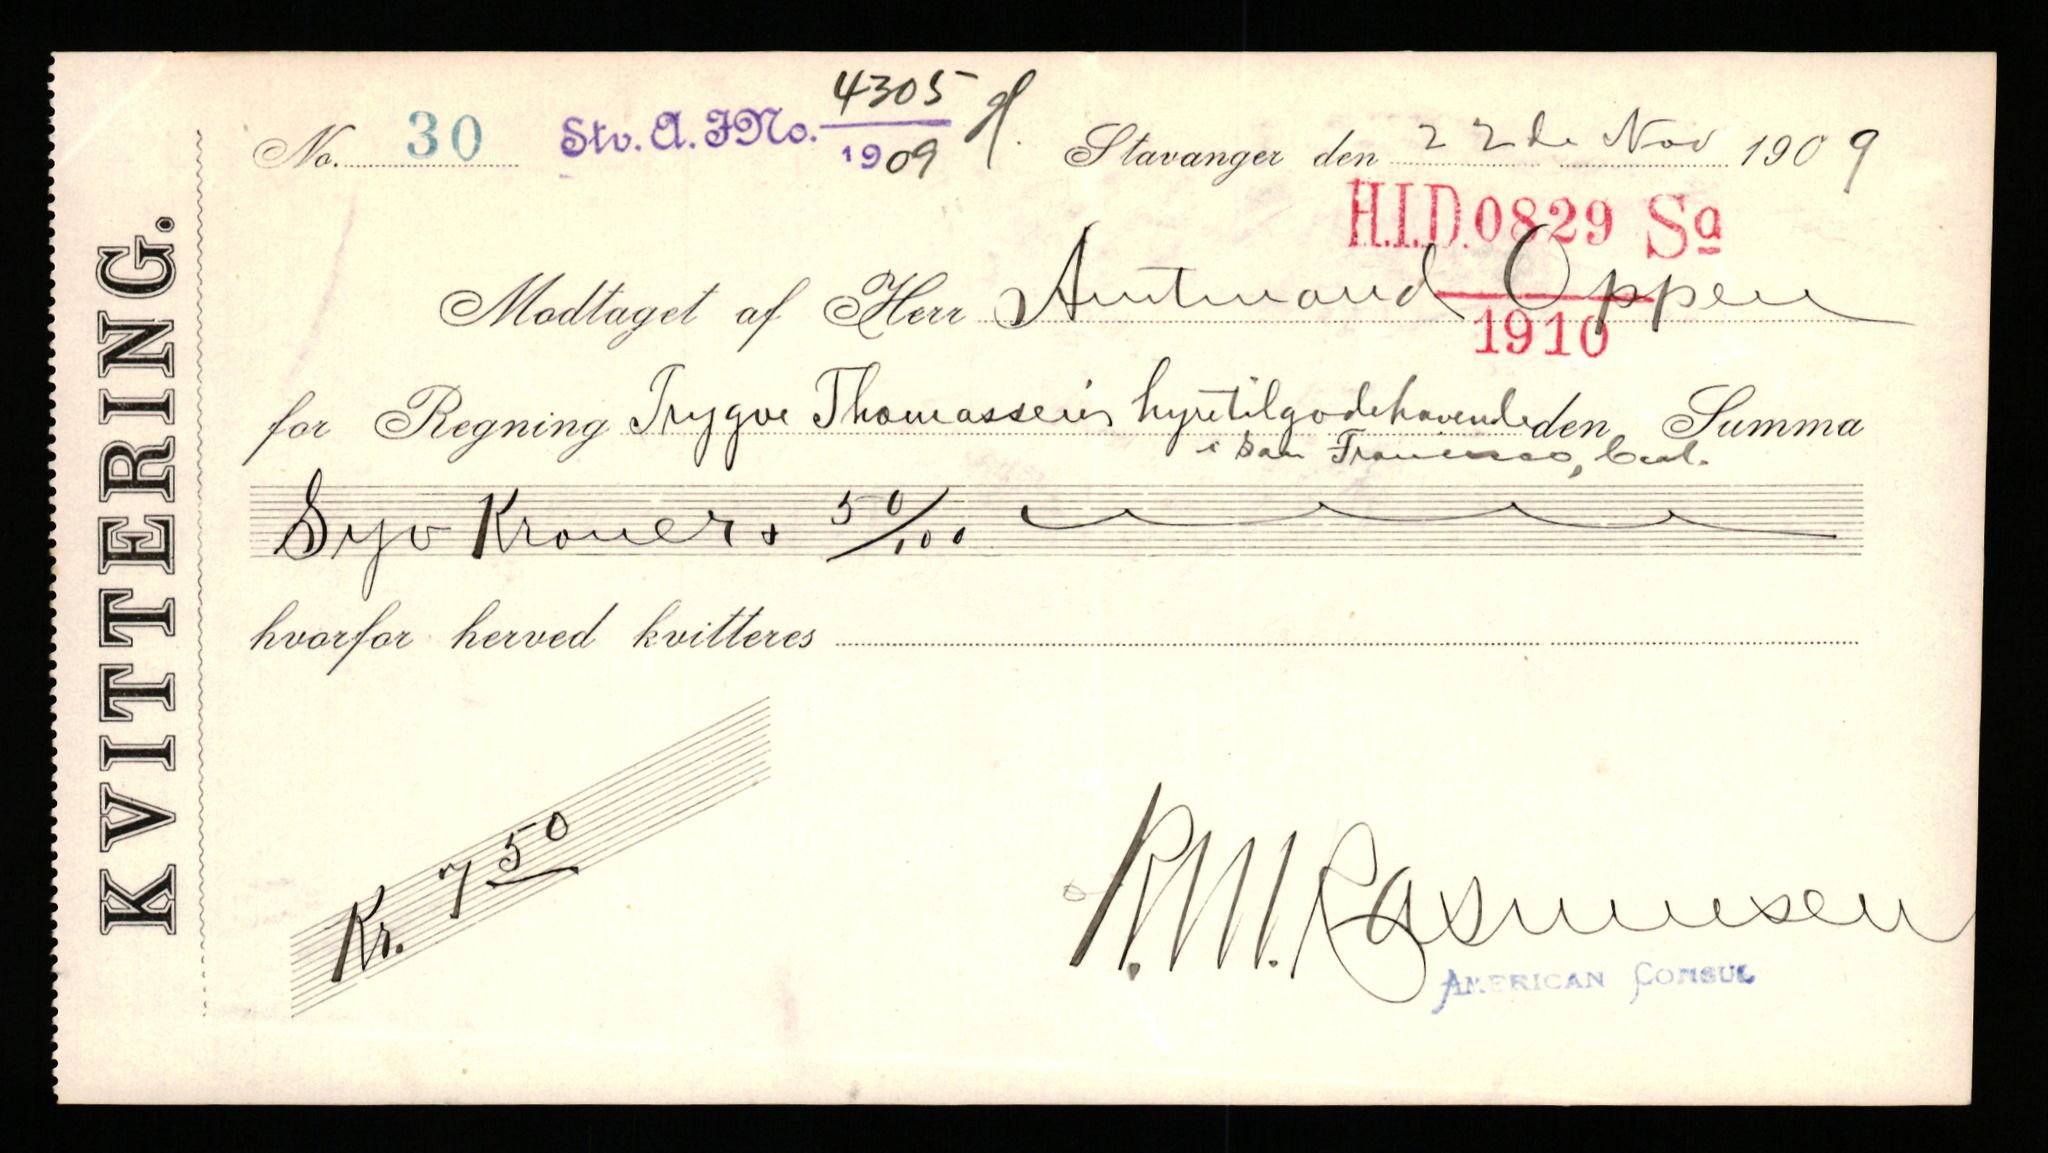 KVITTERING.
No. 30 Stv. A. JNo. 4305/1909 Stavanger den 22de Nov 1909
H.I.D. 0829 Sa
1910
Modtaget af Herr Amtmand Oppen
for Regning Trygve Thomassens hyretilgodehavende den Summa
i San Francisco, Cal.
Syv Kroner & 50/100
hvorfor herved kvitteres
Kr. 7 50
R.M. Rasmussen
AMERICAN CONSUL